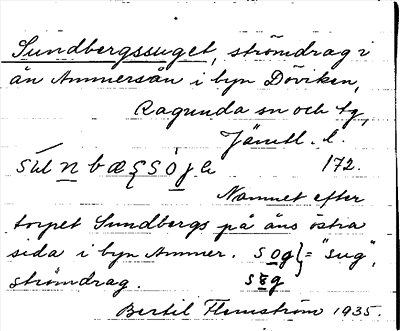 Sundbergssuget, strömdrag i
ån Ammersån i byn Döviken,
Ragunda sn och tg,
Jämtl. l.
172.
Namnet efter
torpet Sundbergs på åns östra
sida i byn Ammer. sog } = "sug",
strömdrag. sɛg
Bertil Flemström 1935.